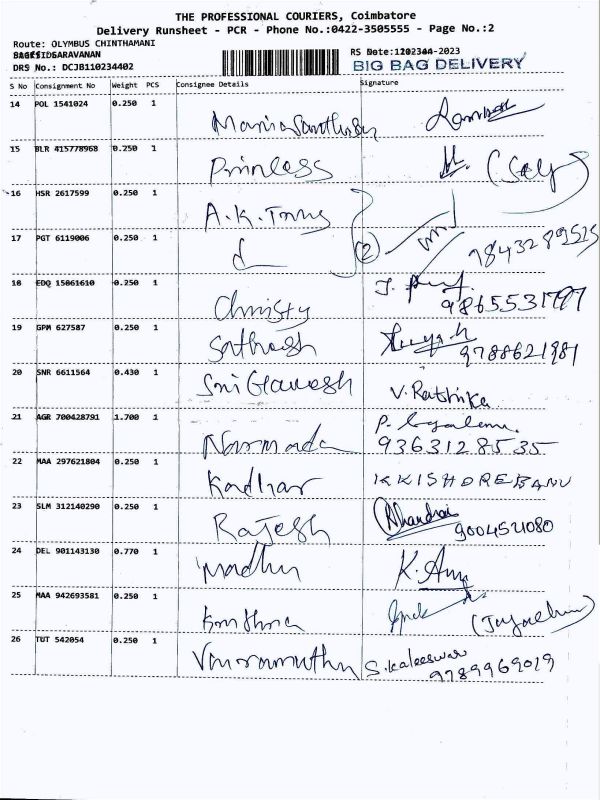 THE PROFESSIONAL COURIERS, Coimbatore
Delivery Runsheet - PCR - Phone No.:0422-3505555 - Page No.:2
Route: OLYMBUS CHINTHAMANI
SARAVANAN
DRS No.: DCJB110234402
-2023
BIG BAG DELIVERY
S No Consignment No Weight PCS Consignee Details Signature
14 POL 1541024 0.250 1
15 BLR 415778968 0.250 1 Princless
16 HSR 2617599 0.250 1 A.K.
17 PGT 6119006 0.250 1 (2) 9843289525
18 EDQ 15061610 0.250 1 Christy 9865531797
19 GPM 627587 0.250 1 Satheesh 9788621981
20 SNR 6611564 0.430 1 Sri Ganesh V. Rathika
21 AGR 700428791 1.700 1 Narmada P.
9363128535
22 MAA 297621804 0.250 1 Kadhar KKISHOREBANU
23 SLM 312140290 0.250 1 Rajesh
9004521080
24 DEL 901143130 0.770 1 Madhu K.
25 MAA 942693581 0.250 1
26 TUT 542054 0.250 1 Vairamuthu S. Kaleeswar
9789969019